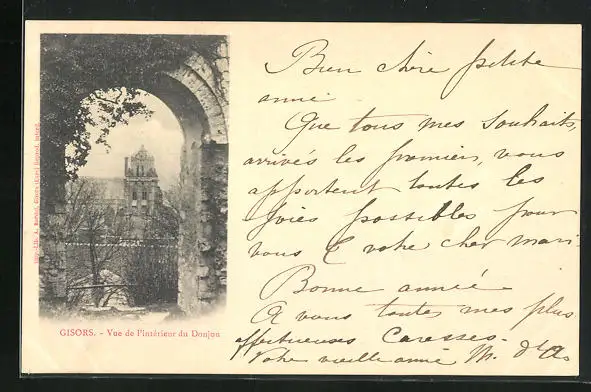 Bien chère petite
amie
Que tous mes souhaits,
arrivés les premiers, vous
apportent toutes les
joies possibles pour
vous & votre cher mari.
Bonne année
A vous toutes mes plus
affectueuses Caresses.
Votre vieille amie M. d'A.
GISORS. - Vue de l'intérieur du Donjon